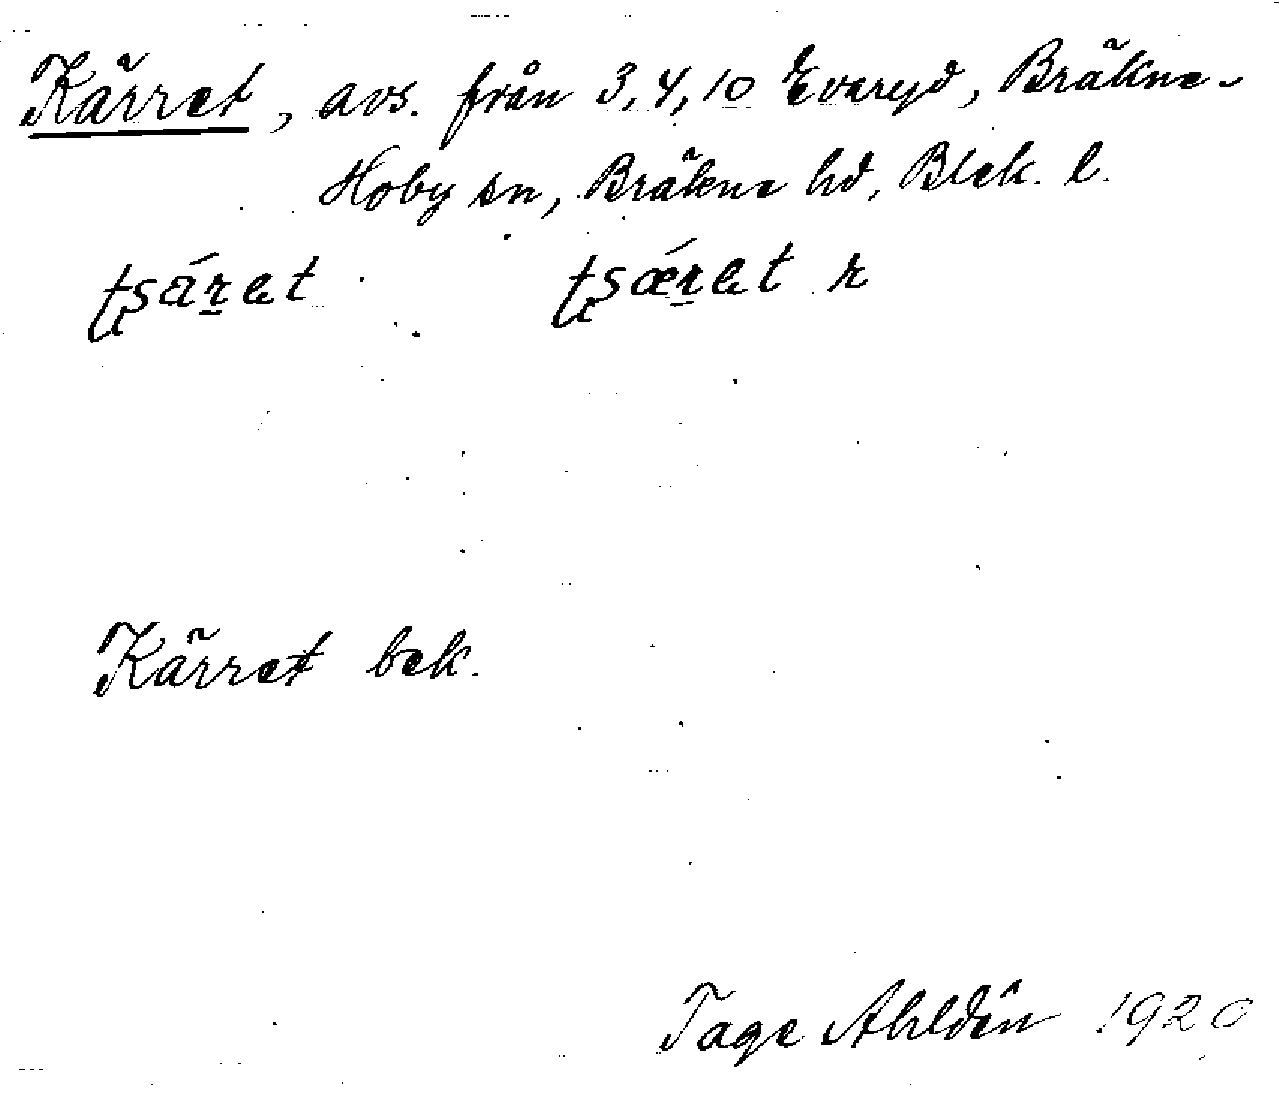 Kärret, avs. från 3, 4, 10 Evaryd, Bräkne-
Hoby sn, Bräkne hd, Blek. l.
Kärret bek.
Tage Ahldén 1920